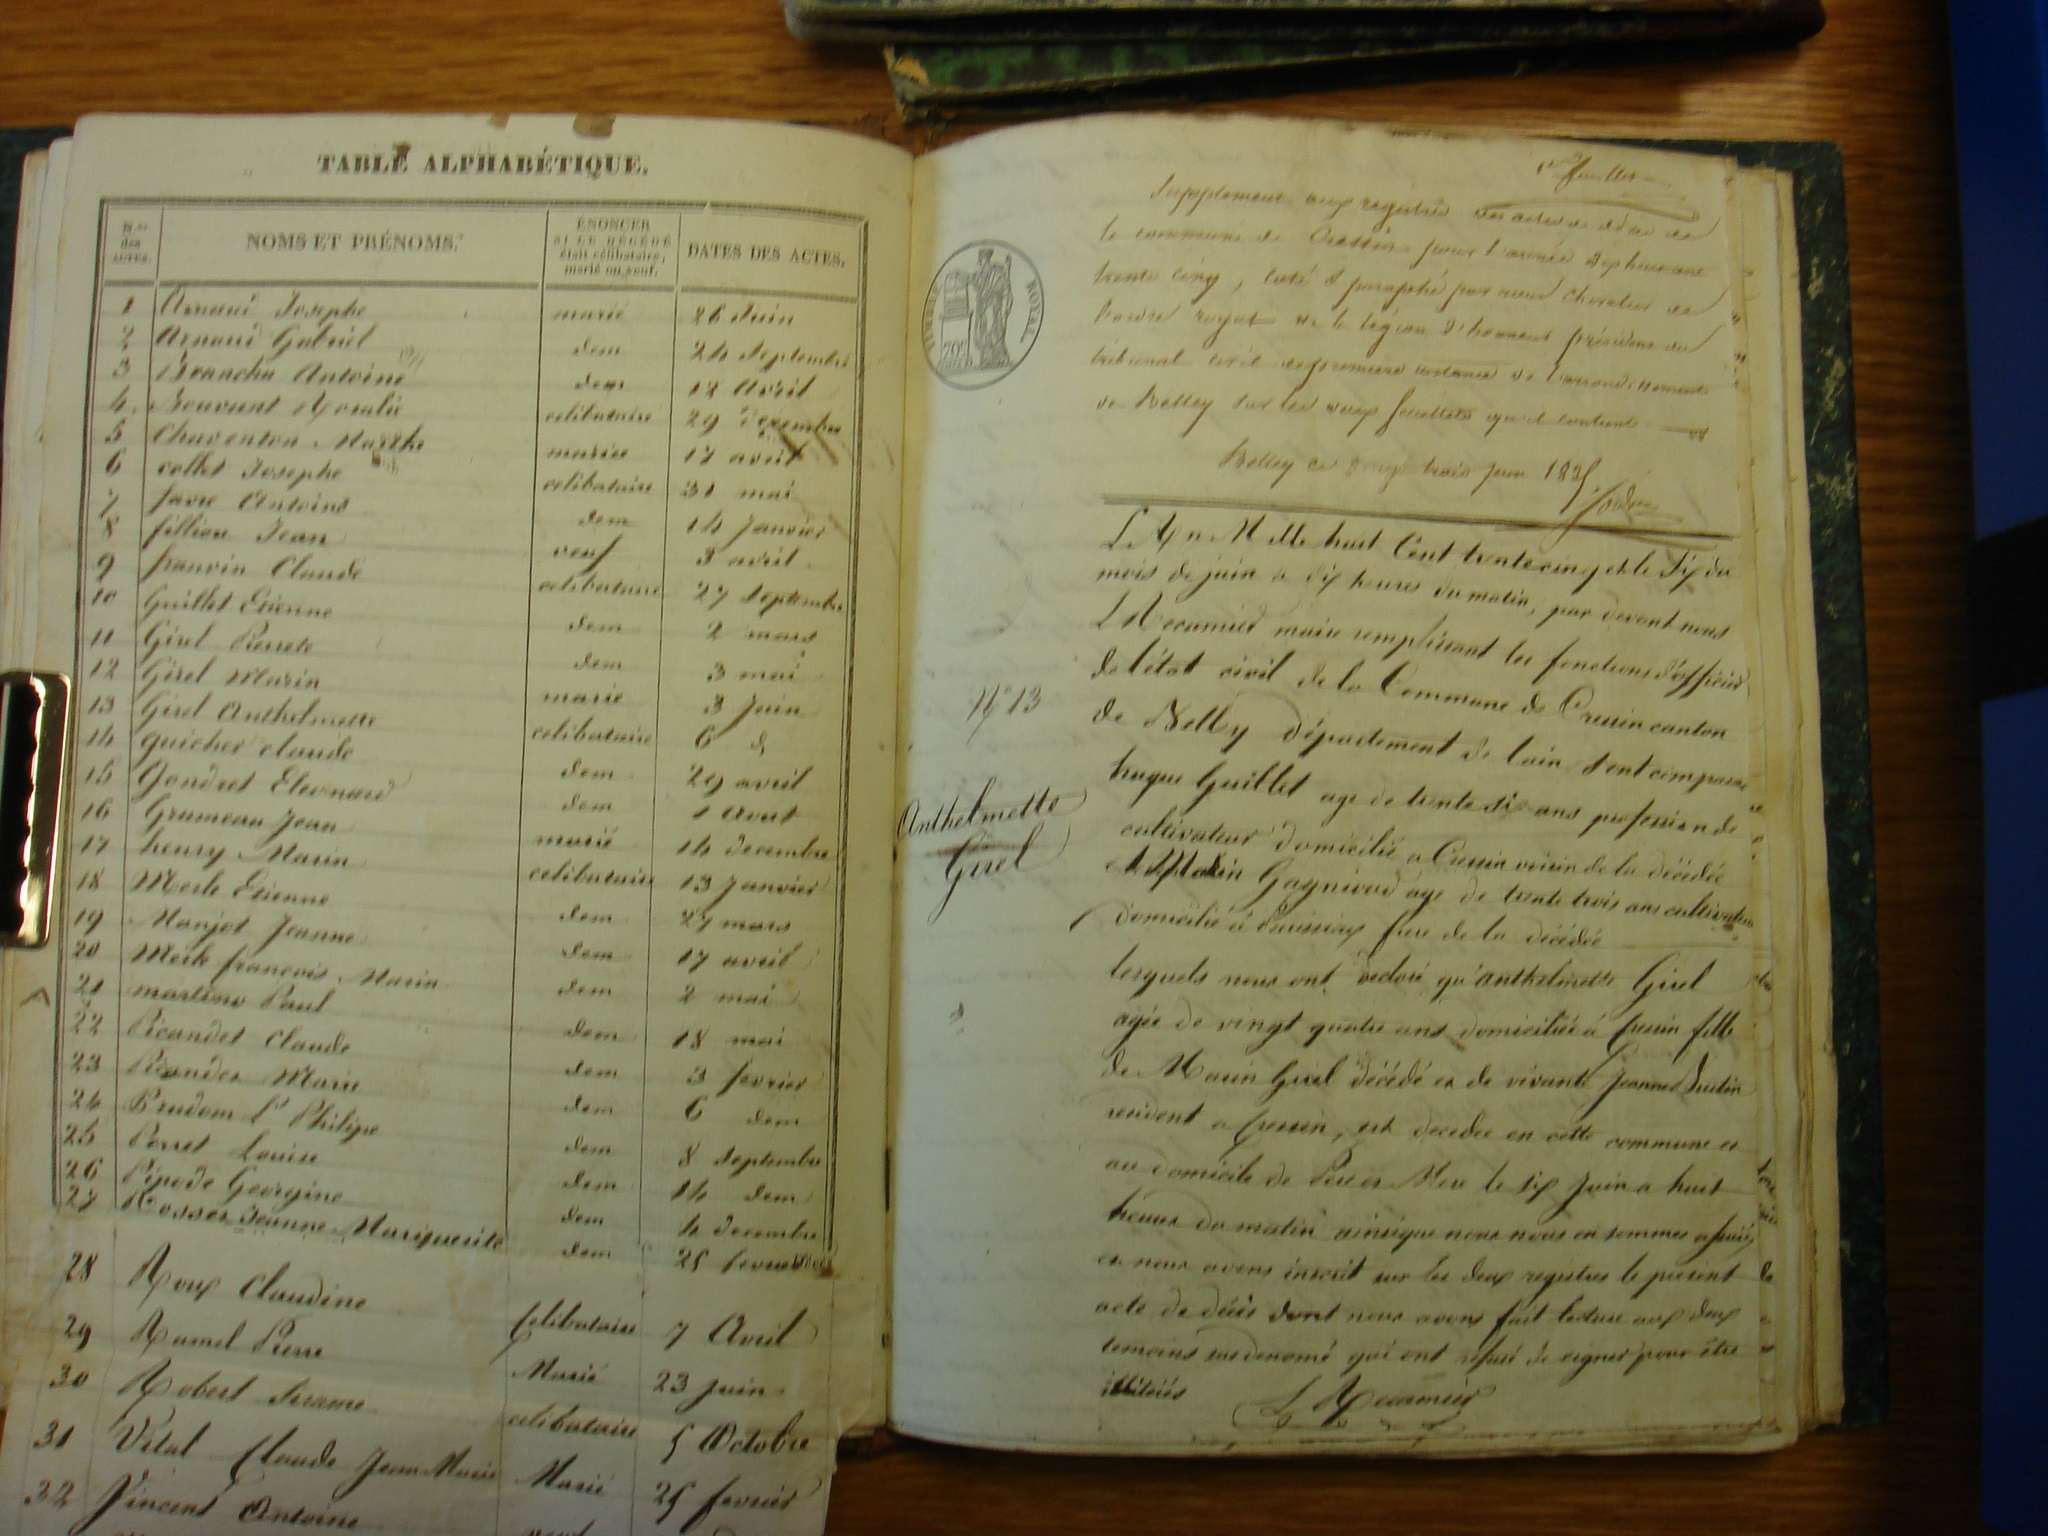 TABLE ALPHABÉTIQUE.
N.os des ACTES.
NOMS ET PRÉNOMS.
ÉNONCER SI LE DÉCÉDÉ était célibataire, marié ou veuf.
DATES DES ACTES.
1 Josephe marié 26 Juin
2 Gabriel dem 24 Septembre
3 Antoine dem 12 Avril
4 celibataire 29 Decembre
5 Marthe mariée 17 avril
6 collet Josephe celibataire 31 mai
7 favre Antoine dem 14 Janvier
8 fillion Jean veuf 3 avril
9 Claude celibataire 27 Septembre
10 Guillet Etienne dem 2 mars
11 Girel Pierrete dem 3 mai
12 Girel Marin marié 3 Juin
13 Girel Anthelmette celibataire 6 d
14 guicher claude dem 29 avril
15 Gondret Eleonard dem 1 Aout
16 Grumeau Jean marié 14 decembre
17 henry Marin celibataire 13 Janvier
18 Merle Etienne dem 27 mars
19 Manjot Jeanne dem 17 avril
20 Merle françois Marin dem 2 mai
21 martine Paul dem 18 mai
22 Picandet Claude dem 3 fevrier
23 Marie dem 6 dem
24 Prudom Philipe dem 8 Septembre
25 Perret Louise dem 14 dem
26 Georgine dem 4 decembre
27 Rosset Jeanne Marguerite dem 25 fevrier
28 Roux Claudine Celibataire 7 Avril
29 Ramel Pierre Marié 23 Juin
30 Robert Jerame celibataire 5 Octobre
31 Vital Claude Jean Marie Marié 25 fevrier
32 Vincent Antoine
feuillet
Supplement aux registres des actes de décès de
la commune de Cressin pour l'année dix huit cent
trente cinq, coté & paraphé par nous chevalier de
l'ordre royal de la légion d'honneur président du
tribunal civil de première instance de l'arrondissement
de Belley sur les deux feuillets qu'il contient
Belley ce trois juin 1835
TIMBRE ROYAL
70c
L'An Mille huit Cent trente cinq et le Six du
mois de juin a dix heures du matin, par devant nous
L Recamier maire remplissant les fonctions d'officier
de l'état civil de la Commune de Cressin canton
de Belley département de l'ain sont comparus
hugue Guillet age de trente six ans profession de
cultivateur domicilié a Cressin voisin de la décédée
et Gagnioud age de trente trois ans cultivateur
domicilié à frere de la décédée
lesquels nous ont declaré qu'anthelmette Girel
agée de vingt quatre ans domiciliée à Cressin fille
de Marin Girel décédé et de vivante Jeanne
residant a Cressin, est decedee en cette commune et
au domicile de Pere et Mere le six Juin a huit
heures du matin ainsi que nous nous en sommes assuré,
et nous avons inscrit sur les deux registres le present
acte de décès dont nous avons fait lecture aux deux
temoins susdenomé qui ont refusé de signer pour être
illiterés
L Recamier
N° 13
Anthelmette
Girel